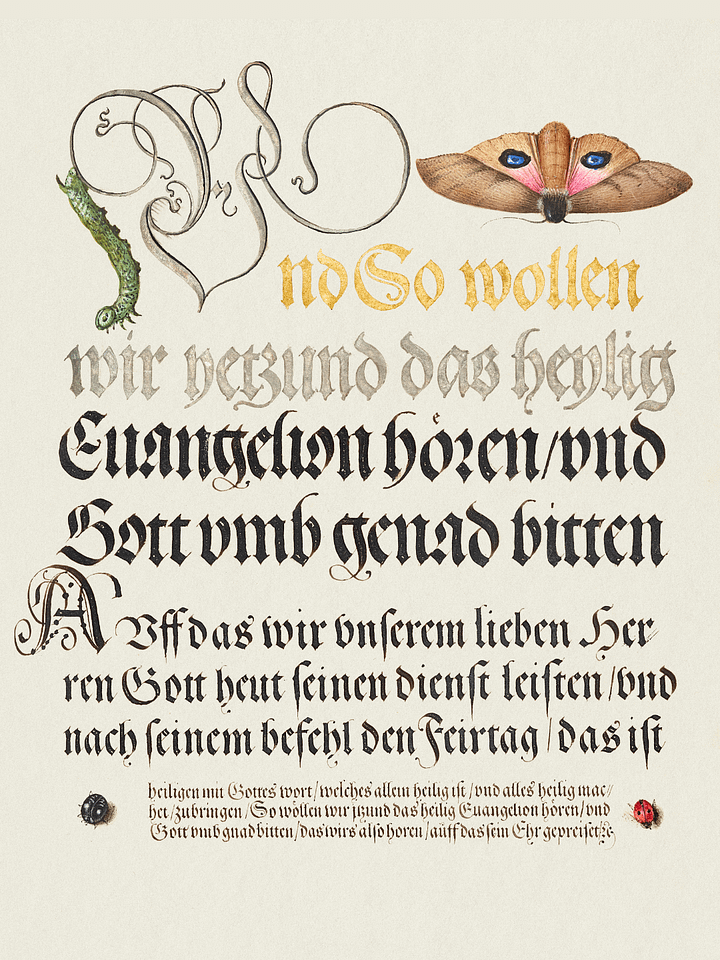 Vnd So wollen
wir yetzund das heylig
Euangelion hören/vnd
Gott vmb genad bitten
AVff das wir vnserem lieben Her-
ren Gott heut seinen dienst leisten/vnd
nach seinem befehl den Feirtag/das ist
heiligen mit Gottes wort/welches allein heilig ist/vnd alles heilig mac-/
het/zubringen/So wöllen wir jtzund das heilig Euangelion hören/vnd
Gott vmb gnad bitten/das wirs also horen/auff das sein Ehr gepreiset